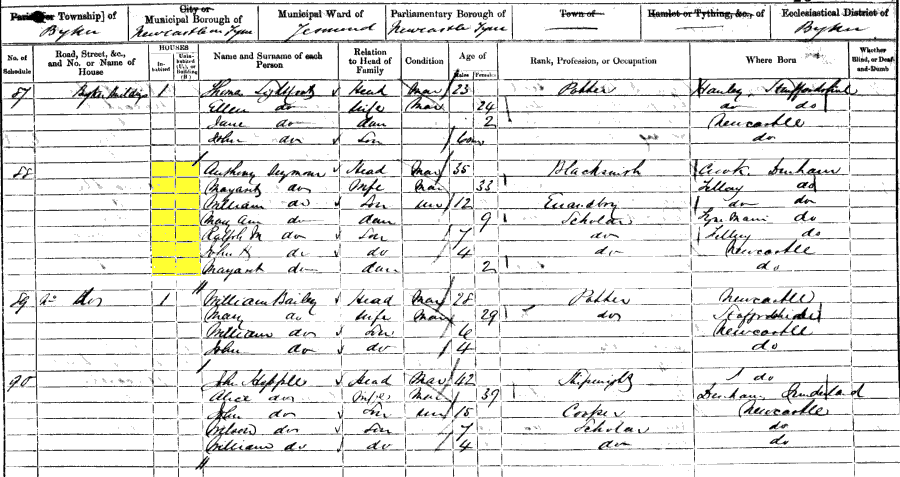 Parish [or Township] of City or Municipal Borough of Municipal Ward of Parliamentary Borough of Town of Hamlet or Tything, &c., of Ecclesiastical District of
Byker Newcastle on Tyne Jesmond Newcastle Tyne Byker
No. of Schedule Road, Street, &c., and No. or Name of House HOUSES Inhabited Uninhabited (U.), or Building (B.) Name and Surname of each Person Relation to Head of Family Condition Age of Males Females Rank, Profession, or Occupation Where Born Whether Blind, or Deaf-and-Dumb
87 Byker Buildings 1 Thomas Lightfoot Head Mar 23 Potter Hanley Staffordshire
Ellen do Wife Mar 24 do do
Jane do daur 2 Newcastle
John do Son 6 mo do
88 Anthony Seymour Head Mar 35 Blacksmith Durham
Margaret do Wife Mar 33 do
William do Son un 12 do do
Mary Ann do daur 9 Scholar do
Ralph M do Son 7 do do
John do do 4 do Newcastle
Margaret do daur 2 do
89 do 1 William Bailey Head Mar 28 Potter Newcastle
Mary do Wife Mar 29 do Staffordshire
William do Son 6 Newcastle
John do do 4 do
90 John Hopple Head Mar 42 Shipwright do
Alice do Wife Mar 39 Durham Sunderland
John do Son un 15 Cooper Newcastle
do Son 7 Scholar do
William do do 4 do do